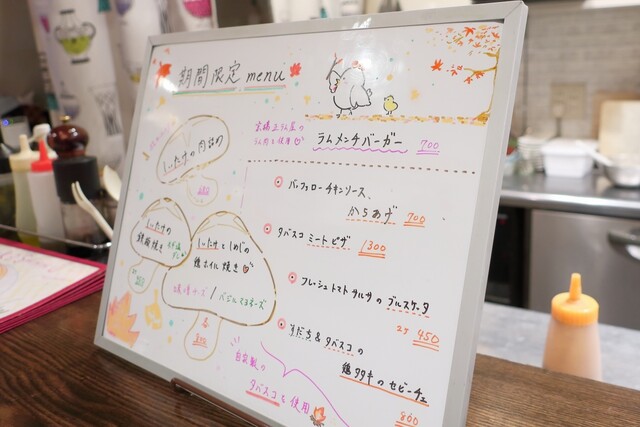 期間限定 menu
しいたけの肉詰め
しいたけの
鉄板焼き
しいたけとしめじの
鶏ホイル焼き
味噌チーズ / バジルマヨネーズ
ラムメンチバーガー 700
バッファローチキンソース、
からあげ 700
タバスコ ミートピザ 1300
フレッシュトマトサルサの ブルスケッタ
2ケ 450
すだち&タバスコの
鶏タタキのセビーチェ
800
自家製の
タバスコを使用